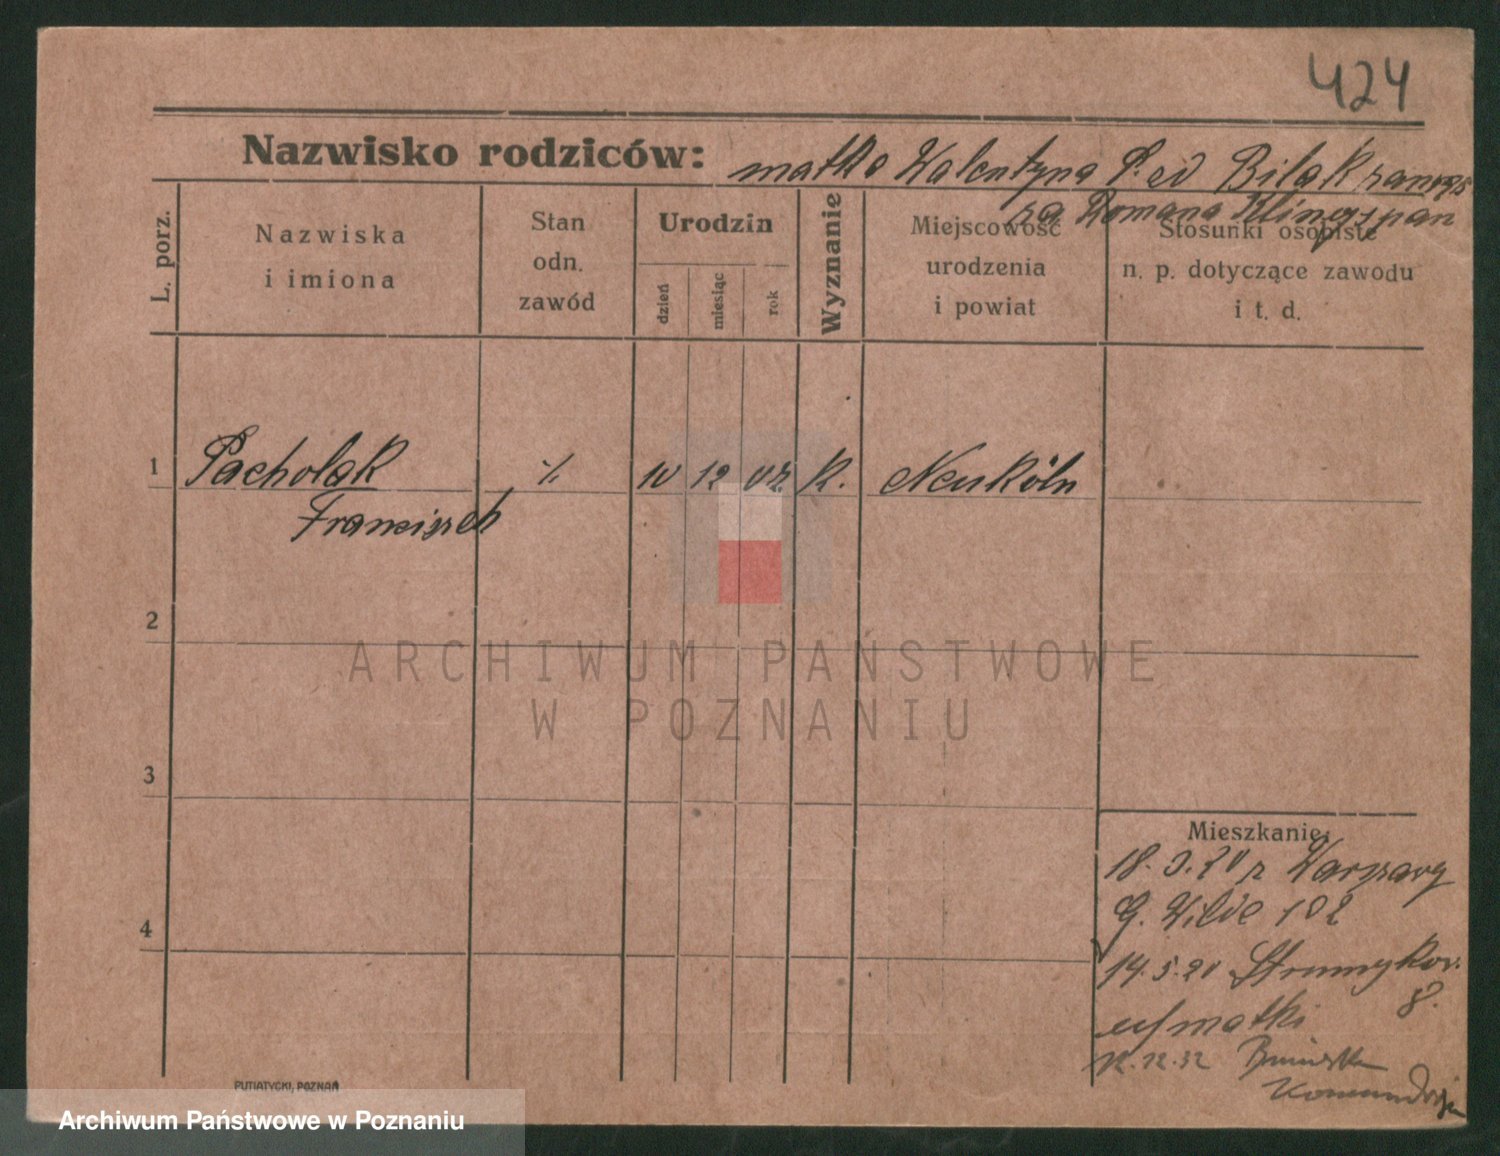 424
Nazwisko rodziców: matka Walentyna P. ed Bilak zamęż
za Romana Klingspan
L. porz.
Nazwiska
i imiona
Stan
odn.
zawód
Urodzin
dzień
miesiąc
rok
Wyznanie
Miejscowość
urodzenia
i powiat
Stosunki osobiste
n. p. dotyczące zawodu
i t. d.
1 Pacholak ·/. 10 12 02 K. Neuköln
Franciszek
2
3
4
Mieszkanie:
18.3.20 z Warszawy
G. Wilde 102
14.5.20 Strumykow.
8.
matki
12.12.32
PUTIATYCKI, POZNAŃ
ARCHIWUM PAŃSTWOWE
W POZNANIU
Archiwum Państwowe w Poznaniu